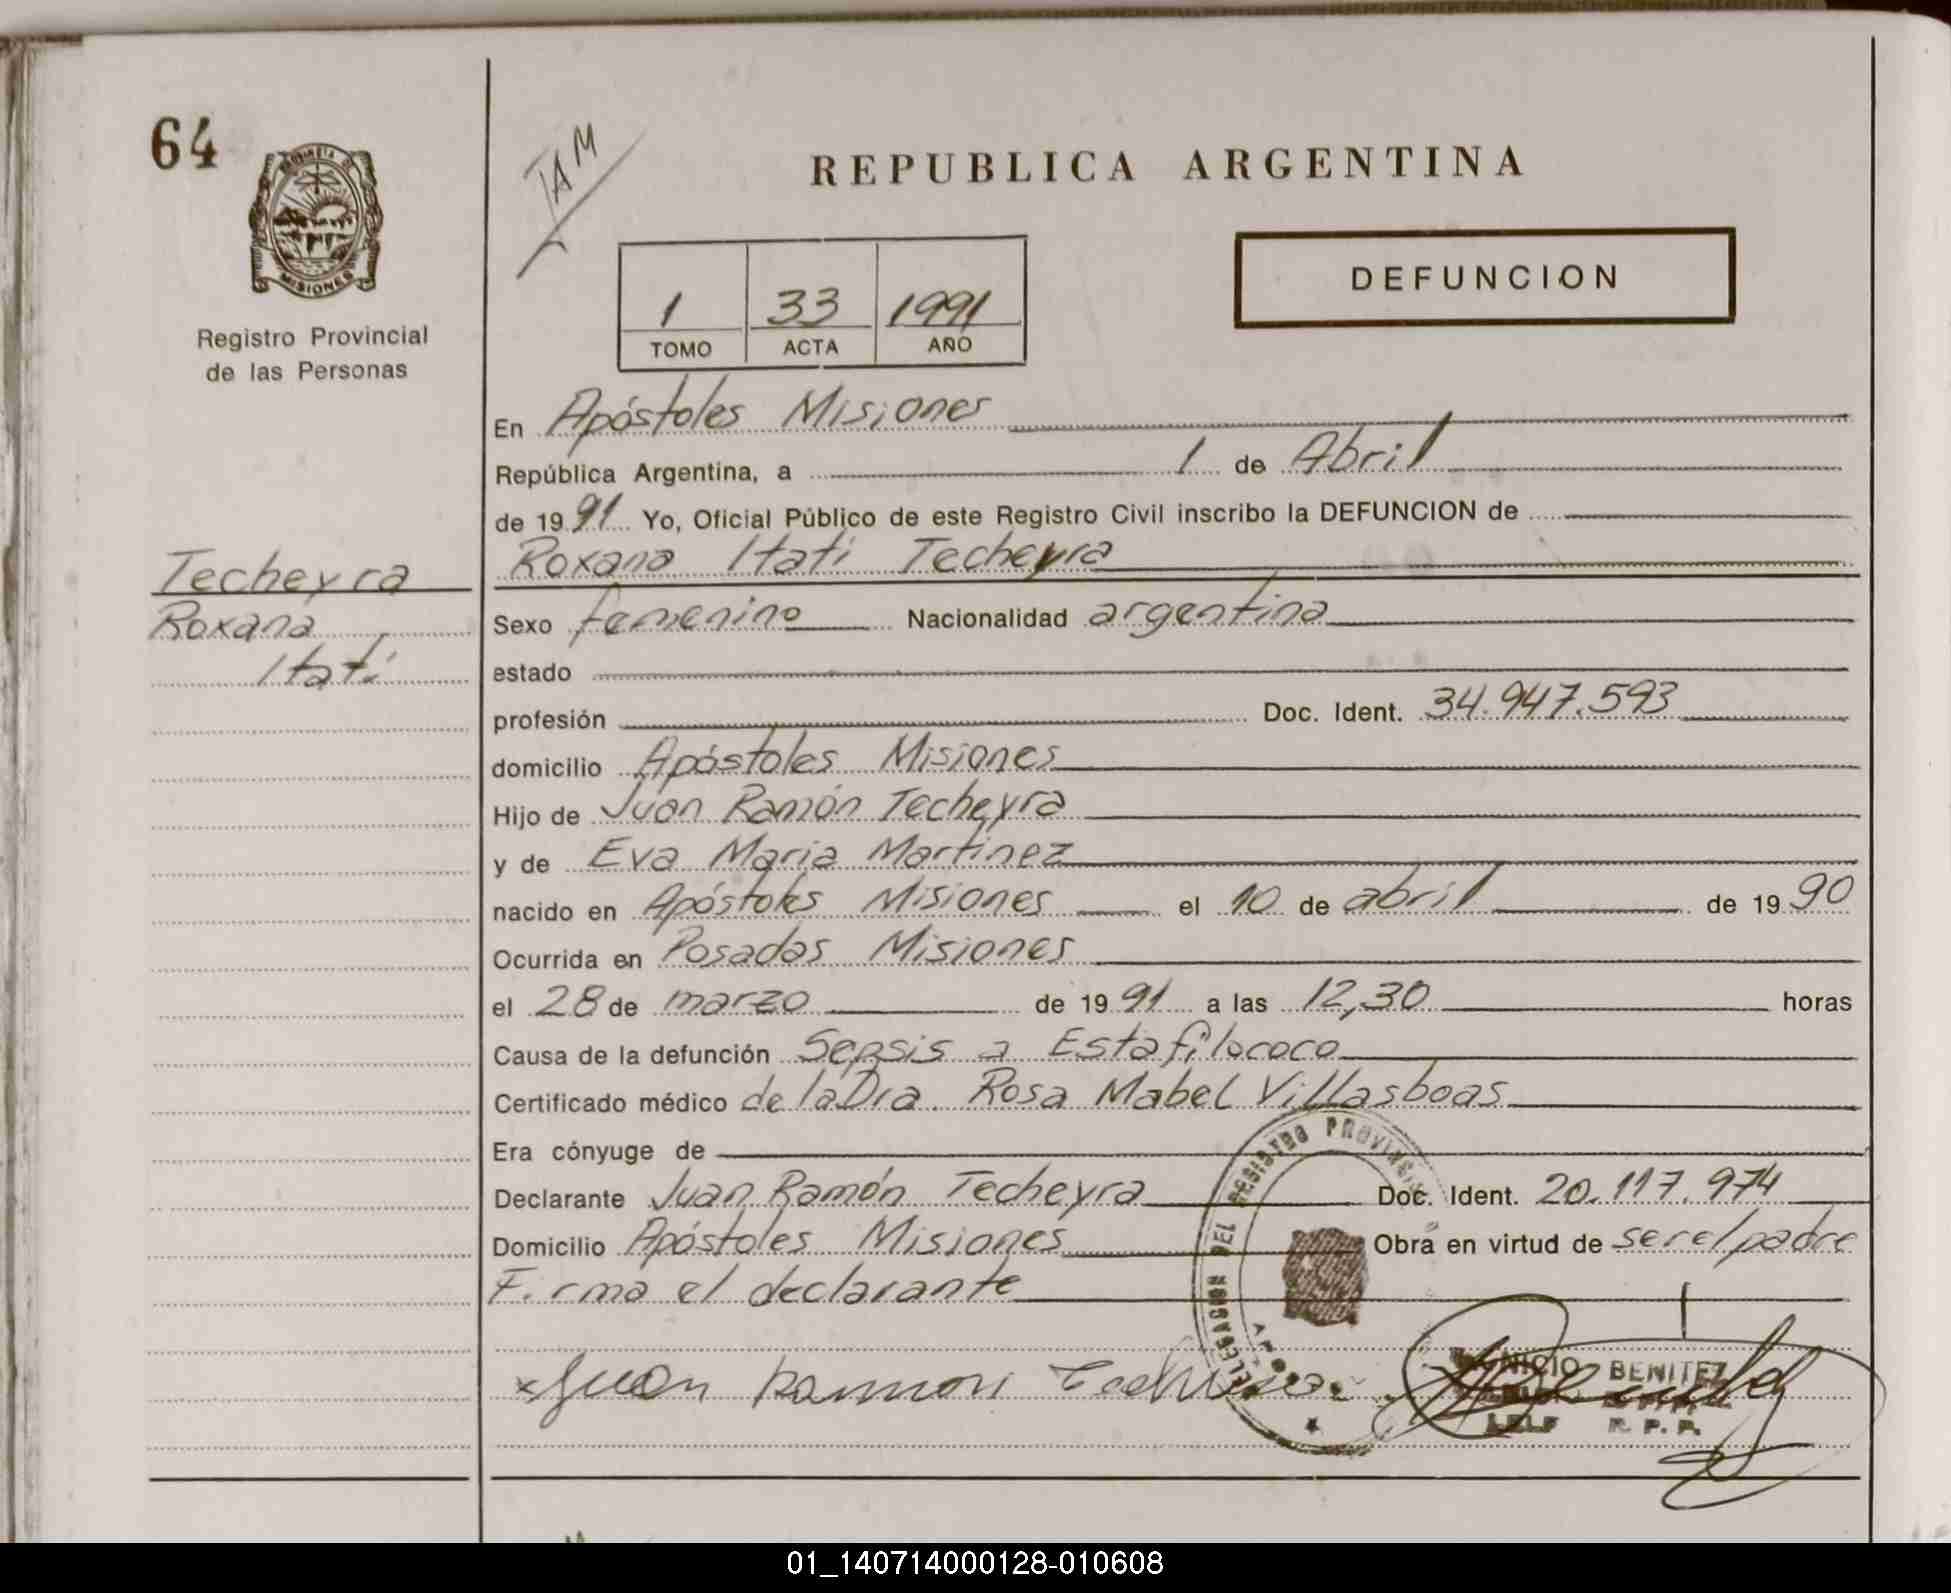 64
PROVINCIA DE
MISIONES
Registro Provincial
de las Personas
Techeyra
Roxana
Itatí
IAM
REPUBLICA ARGENTINA
DEFUNCION
1 33 1991
TOMO ACTA AÑO
En Apóstoles Misiones
República Argentina, a 1 de Abril
de 1991 Yo, Oficial Público de este Registro Civil inscribo la DEFUNCION de
Roxana Itatí Techeyra
Sexo femenino Nacionalidad argentina
estado
profesión Doc. Ident. 34.947.593
domicilio Apóstoles Misiones
Hijo de Juan Ramón Techeyra
y de Eva Maria Martinez
nacido en Apóstoles Misiones el 10 de abril de 1990
Ocurrida en Posadas Misiones
el 28 de marzo de 1991 a las 12,30 horas
Causa de la defunción Sepsis a Estafilococo
Certificado médico de la Dra. Rosa Mabel Villasboas
Era cónyuge de
Declarante Juan Ramón Techeyra Doc. Ident. 20.117.974
Domicilio Apóstoles Misiones Obra en virtud de ser el padre
Firma el declarante
DEL REGISTRO PROVINCIAL
x Juan Ramon
BENITEZ
R. P. P.
01_140714000128-010608